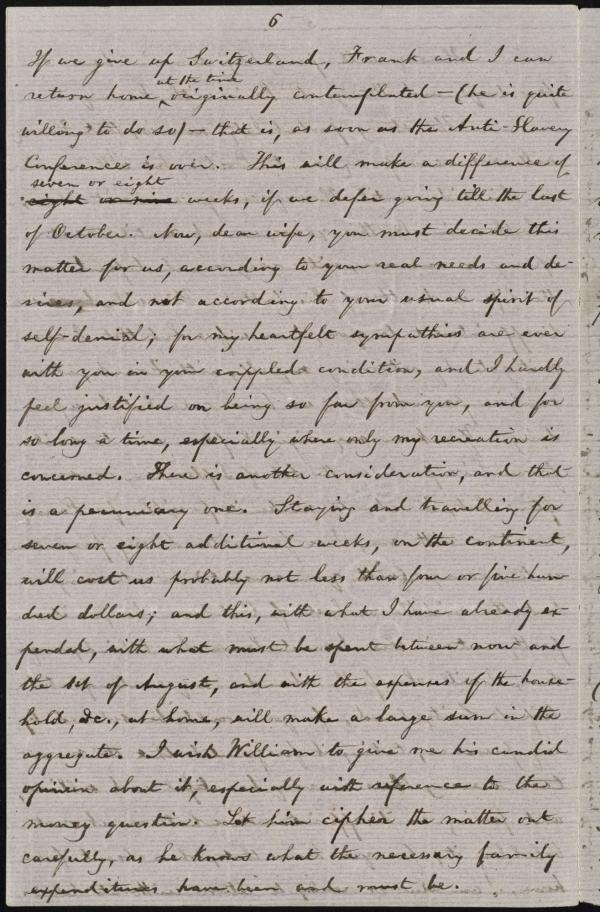 6
If we give up Switzerland, Frank and I can
at the time
return home, originally contemplated — (he is quite
willing to do so) — that is, as soon as the Anti-Slavery
Conference is over. This will make a difference of
seven or eight
eight or nine weeks, if we defer going till the last
of October. Now, dear wife, you must decide this
matter for us, according to your real needs and de-
sires, and not according to your usual spirit of
self-denial; for my heartfelt sympathies are ever
with you in your crippled condition, and I hardly
feel justified on being so far from you, and for
so long a time, especially where only my recreation is
concerned. There is another consideration, and that
is a pecuniary one. Staying and travelling for
seven or eight additional weeks, on the continent,
will cost us probably not less than four or five hun
dred dollars; and this, with what I have already ex-
pended, with what must be spent between now and
the 1st of August, and with the expenses of the house-
hold, &c., at home, will make a large sum in the
aggregate. I wish William to give me his candid
opinion about it, especially with reference to the
money question. Let him cipher the matter out
carefully, as he knows what the necessary family
expenditures have been and must be.